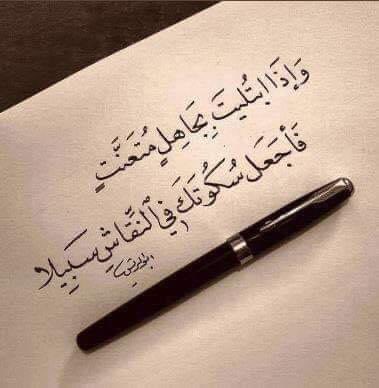 وَإِذَا ابْتُلِيتَ بِجَاهِلٍ مُتَعَنِّتٍ
فَأجعَل سُكُوتَكَ فِي ٱلنِّقَاشِ سَبِيلا